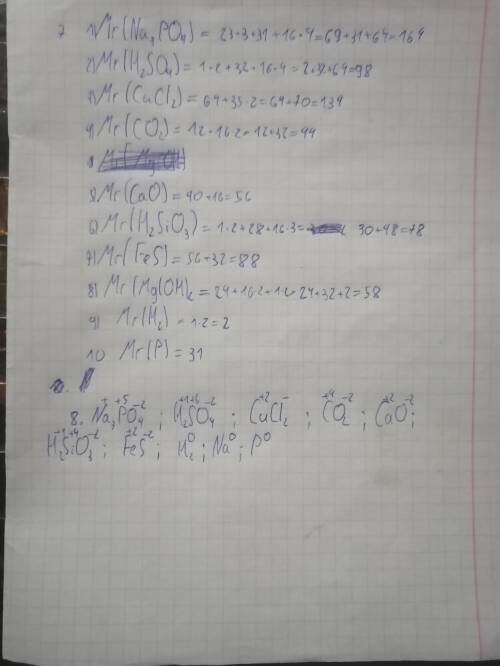 7. 1) Mr(Na₃PO₄) = 23·3+31+16·4=69+31+64=164
2) Mr(H₂SO₄)= 1·2+32+16·4=2+32+64=98
3) Mr(CuCl₂)= 64+35·2=64+70=134
4) Mr(CO₂)= 12+16·2=12+32=44
5) Mr(CaO)= 40+16=56
6) Mr(H₂SiO₃)= 1·2+28+16·3= 30+48=78
7) Mr(FeS)=56+32=88
8) Mr(Mg(OH)₂=24+16·2+1·2=24+32+2=58
9) Mr(H₂)=1·2=2
10 Mr(P)=31
8. Na₃⁺P⁺⁵O₄⁻²; H₂⁺¹S⁺⁶O₄⁻²; Cu⁺²Cl₂⁻; C⁺⁴O₂⁻²; Ca⁺²O⁻²;
H₂⁺¹Si⁺⁴O₃⁻²; Fe⁺²S⁻²; H₂⁰; Na⁰; P⁰